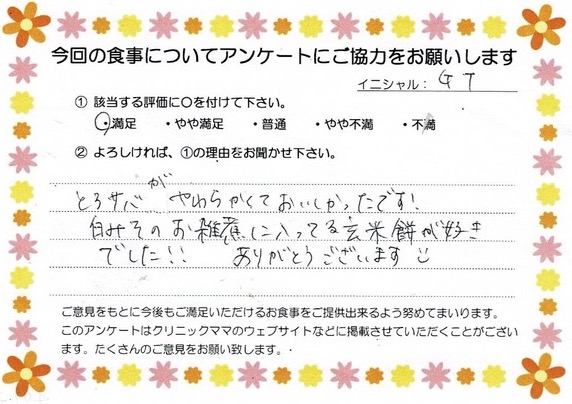 今回の食事についてアンケートにご協力をお願いします
イニシャル： G T
① 該当する評価に〇を付けて下さい。
・満足 ・やや満足 ・普通 ・やや不満 ・不満
② よろしければ、①の理由をお聞かせ下さい。
とろサバが やわらかくておいしかったです!
白みそのお雑煮に入ってる玄米餅が好き
でした!! ありがとうございます
ご意見をもとに今後もご満足いただけるお食事をご提供出来るよう努めてまいります。
このアンケートはクリニックママのウェブサイトなどに掲載させていただくことがござい
ます。たくさんのご意見をお願い致します。